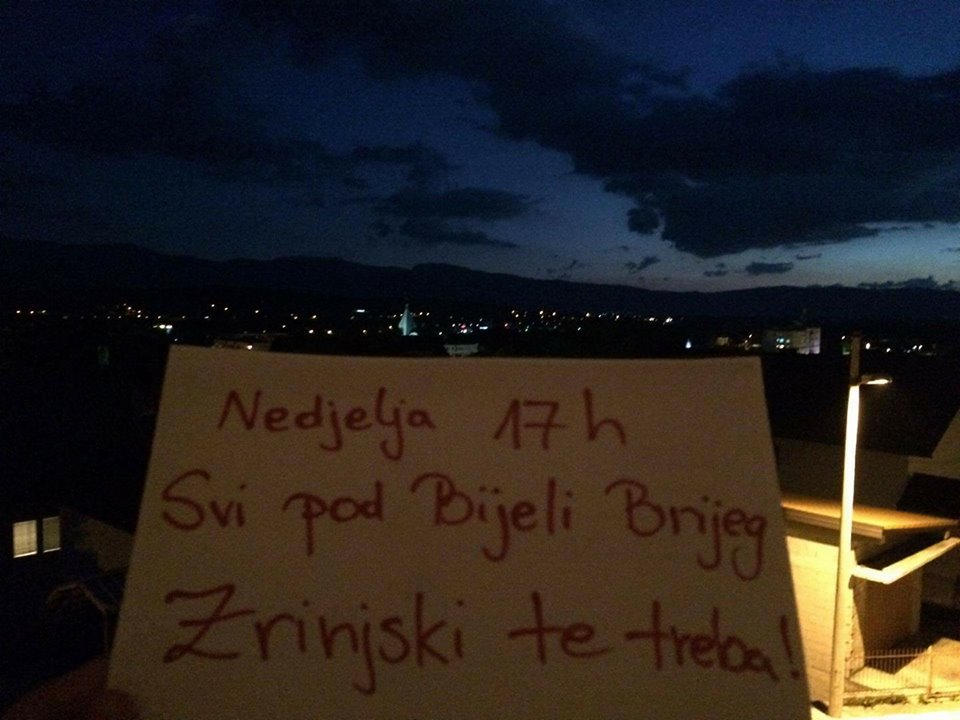 Nedjelja 17h
Svi pod Bijeli Brijeg
Zrinjski te treba!